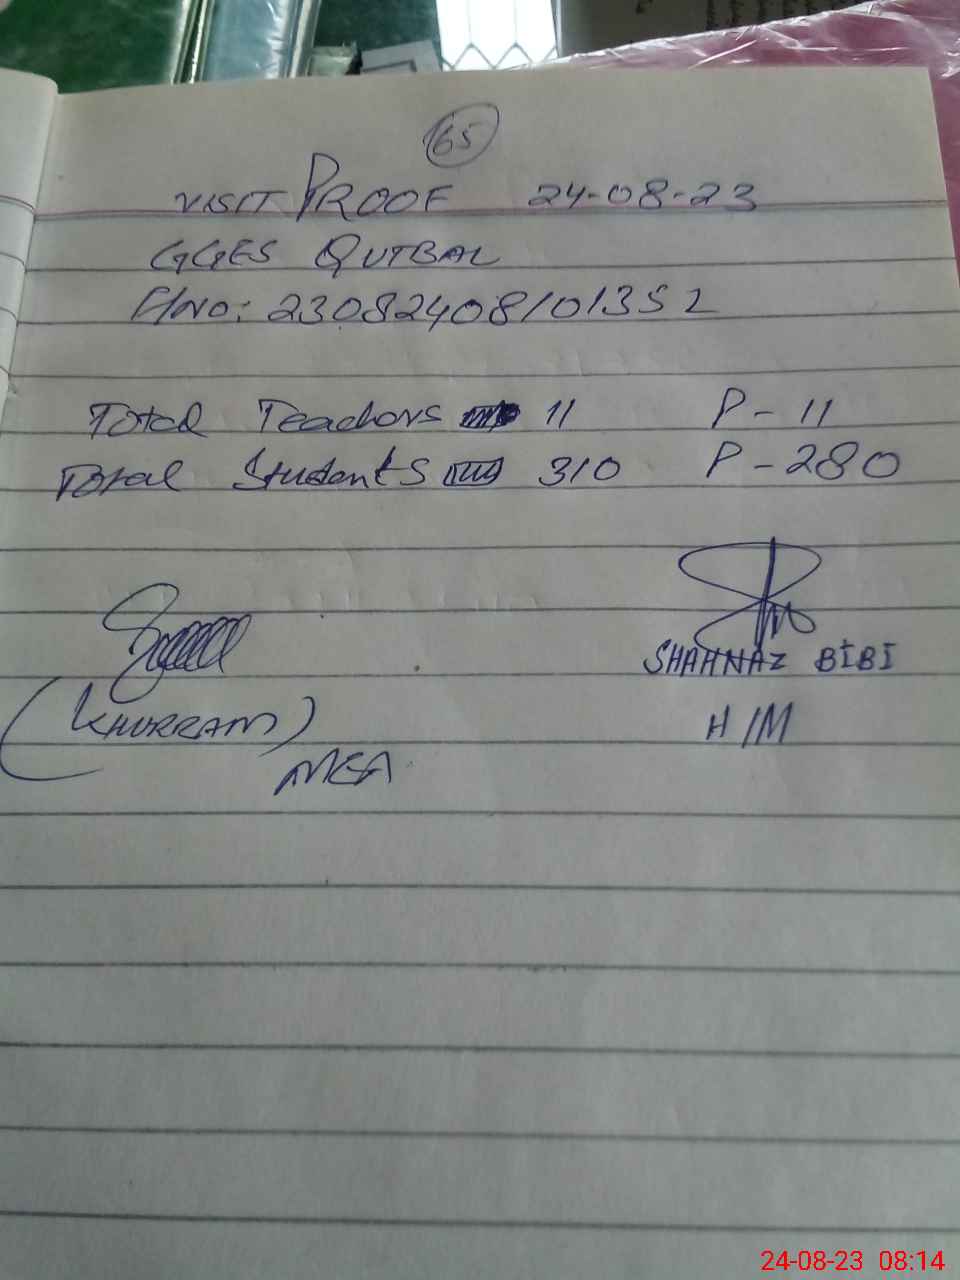 65
VISIT PROOF 24-08-23
GGES QUTBAL
F/NO: 2308240810135 2
Total Teachers 11 P - 11
Total Students 310 P - 280
SHAHNAZ BIBI
(KHURRAM) H/M
MEA
24-08-23 08:14